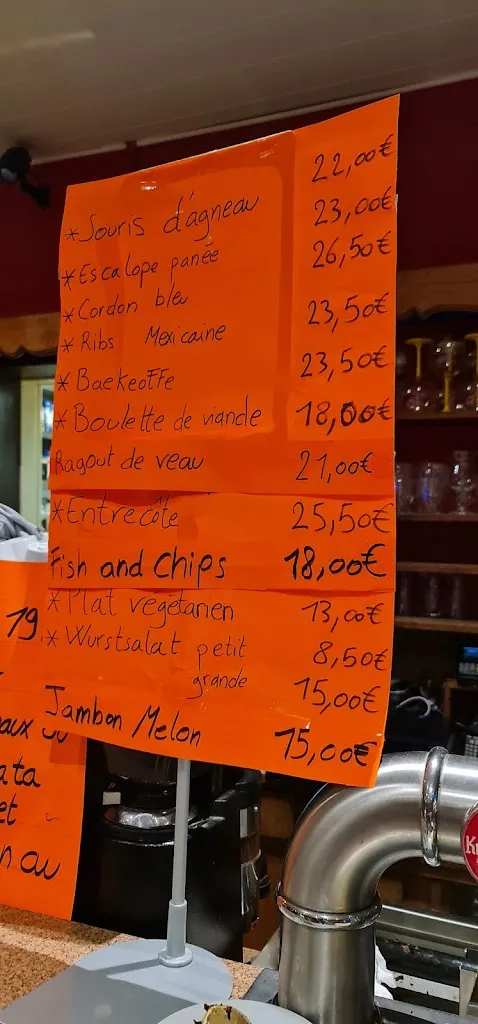 *Souris d'agneau 22,00€
*Escalope panée 23,00€
*Cordon bleu 26,50€
*Ribs Mexicaine 23,50€
*Baekeoffe 23,50€
*Boulette de viande 18,00€
Ragout de veau 21,00€
*Entrecôte 25,50€
Fish and Chips 18,00€
*Plat vegetarien 13,00€
*Wurstsalat petit 8,50€
grande 15,00€
Jambon Melon 15,00€
19
aux
ata
et
n au